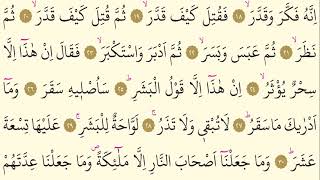 اِنَّهُ فَكَّرَ وَقَدَّرَۙ ﴿١٨﴾ فَقُتِلَ كَيْفَ قَدَّرَۙ ﴿١٩﴾ ثُمَّ قُتِلَ كَيْفَ قَدَّرَۙ ﴿٢٠﴾ ثُمَّ
نَظَرَۙ ﴿٢١﴾ ثُمَّ عَبَسَ وَبَسَرَۙ ﴿٢٢﴾ ثُمَّ اَدْبَرَ وَاسْتَكْبَرَۙ ﴿٢٣﴾ فَقَالَ اِنْ هٰذَٓا اِلَّا
سِحْرٌ يُؤْثَرُۙ ﴿٢٤﴾ اِنْ هٰذَٓا اِلَّا قَوْلُ الْبَشَرِۜ ﴿٢٥﴾ سَاُصْل۪يهِ سَقَرَ ﴿٢٦﴾ وَمَٓا
اَدْرٰيكَ مَاسَقَرُۜ ﴿٢٧﴾ لَاتُبْق۪ي وَلَا تَذَرُۚ ﴿٢٨﴾ لَوَّاحَةٌ لِلْبَشَرِۚ ﴿٢٩﴾ عَلَيْهَا تِسْعَةَ
عَشَرَۜ ﴿٣٠﴾ وَمَا جَعَلْنَٓا اَصْحَابَ النَّارِ اِلَّا مَلٰٓئِكَةًۖ وَمَا جَعَلْنَا عِدَّتَهُمْ